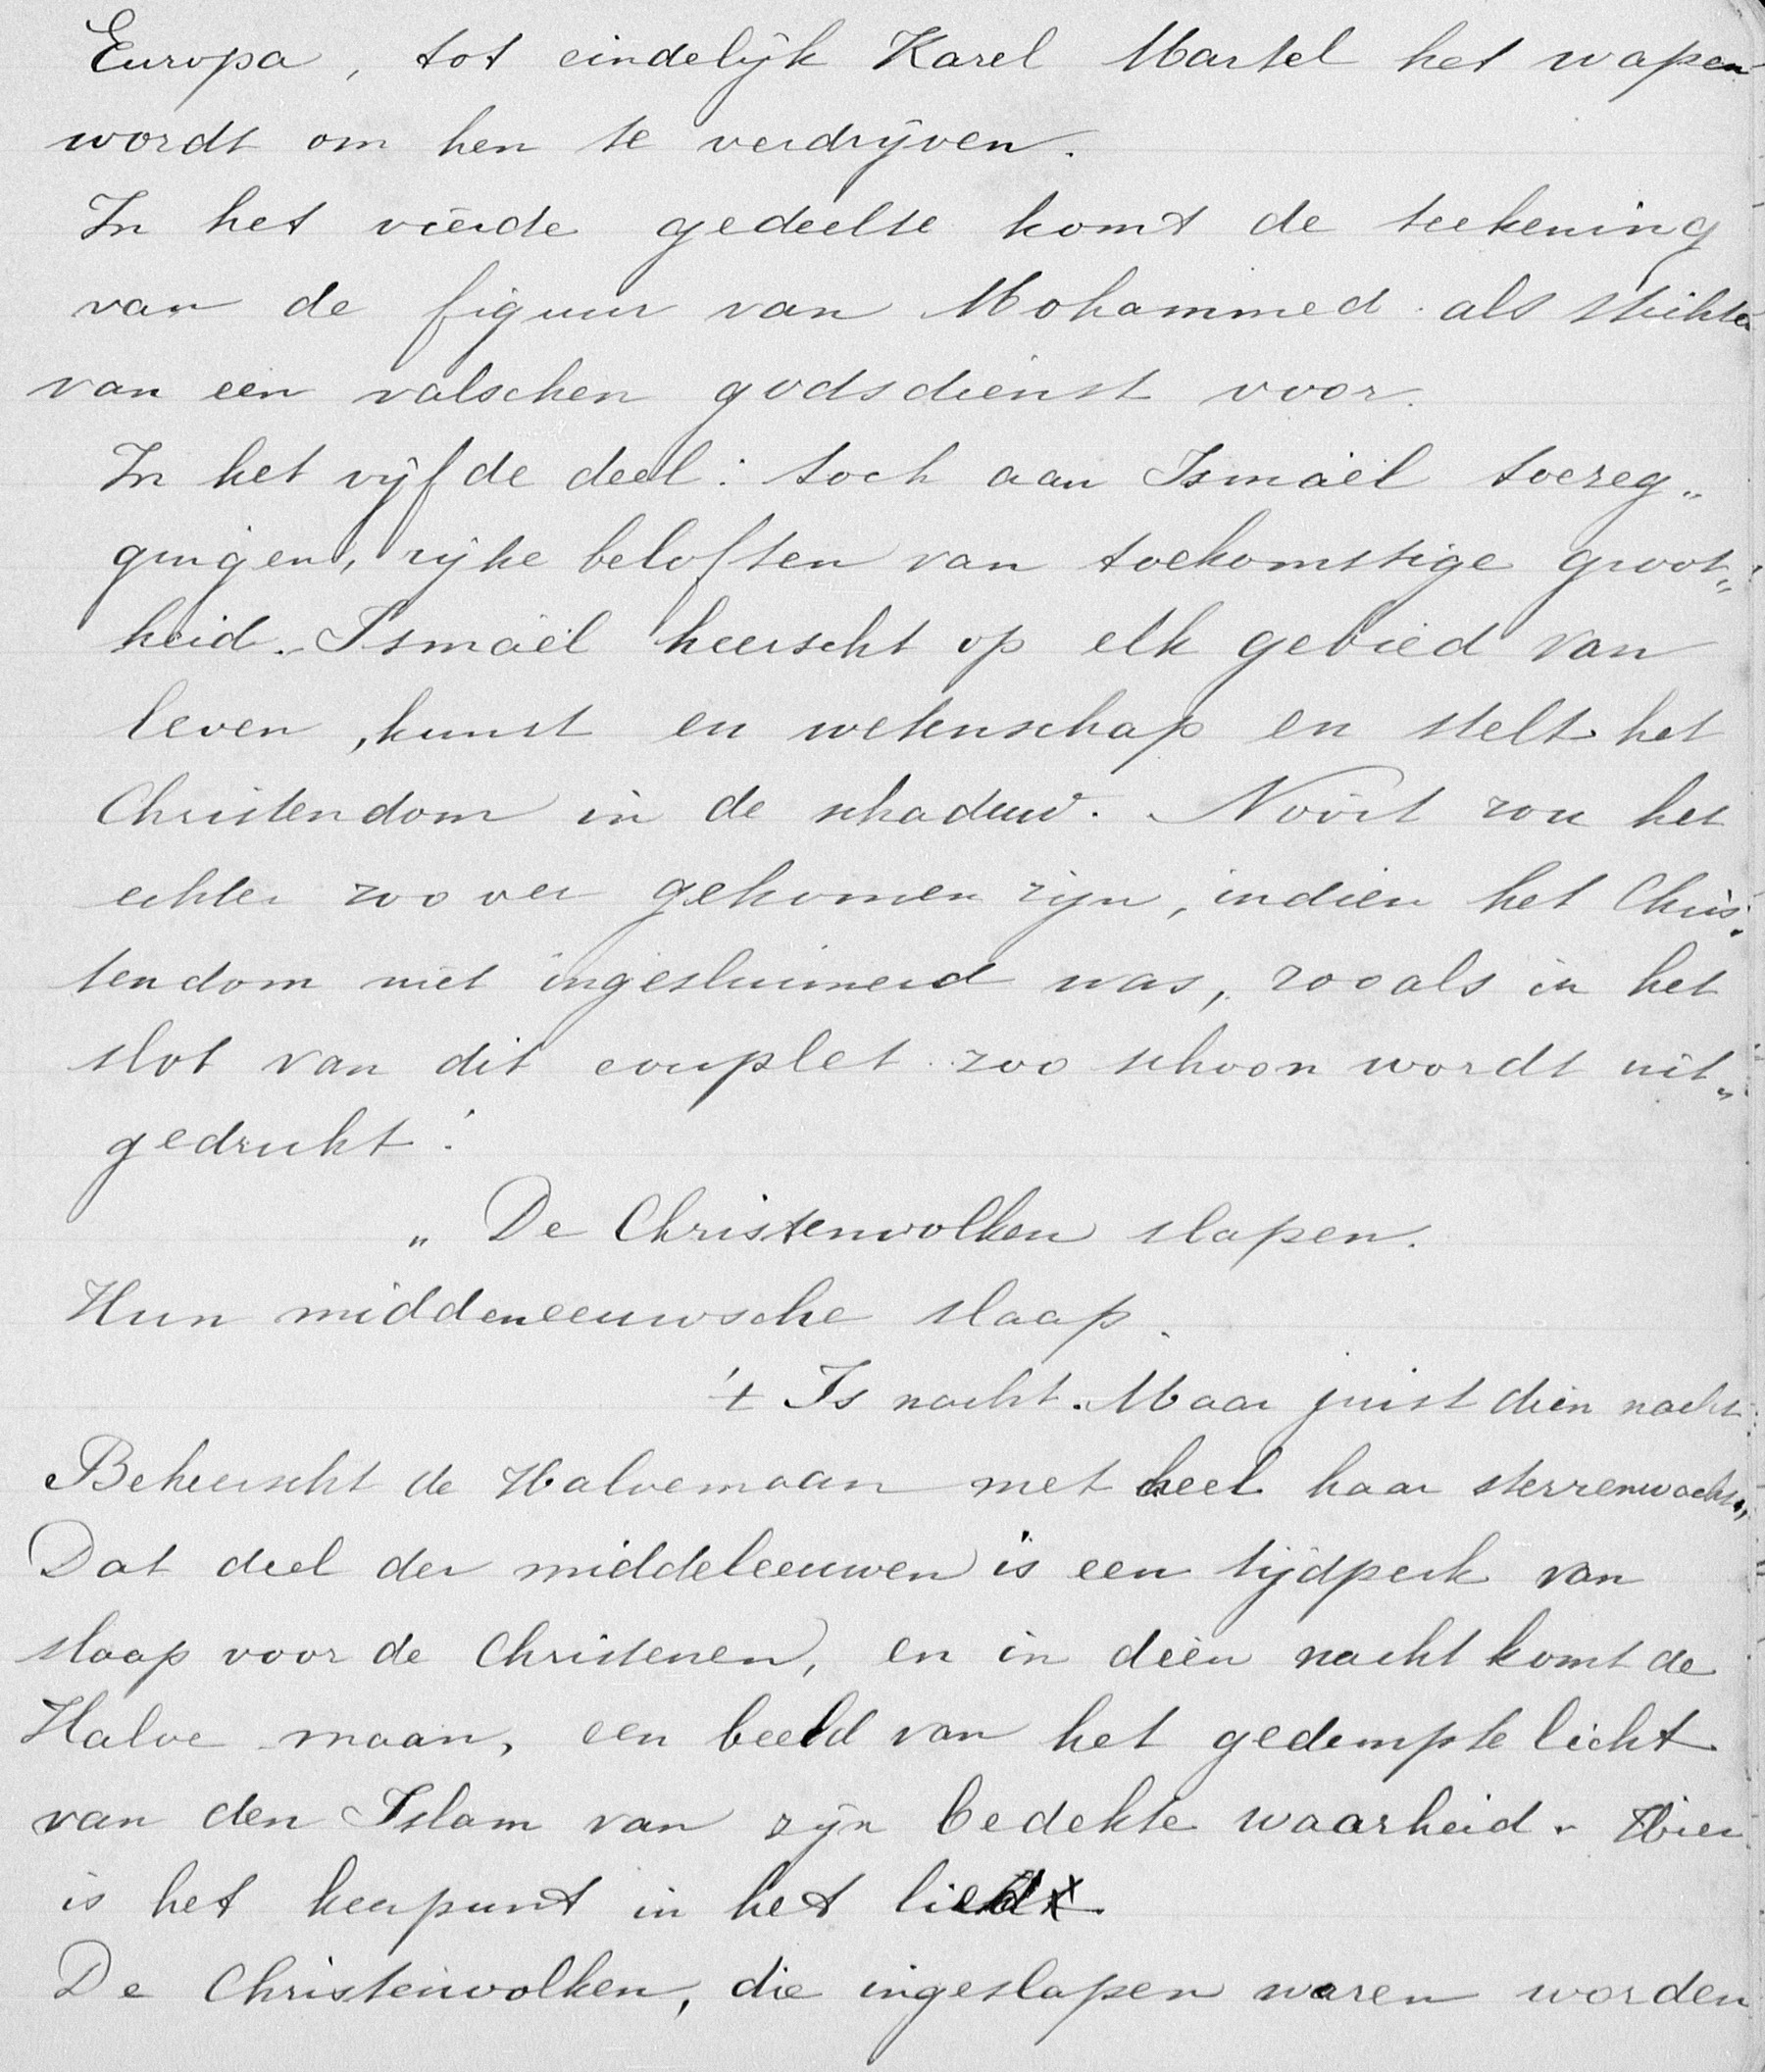 Europa, tot eindelijk Karel Martel het wapen
wordt om hen te verdrijven.
In het vierde gedeelte komt de teekening
van de figuur van Mohammed als stichter
van een valschen godsdienst voor.
In het vijfde deel: toch aan Ismaël toezeg„
gingen, rijke beloften van toekomstige groot„
heid. Ismaël heerscht op elk gebied van
leven, kunst en wetenschap en stelt het
Christendom in de schaduw. Nooit zou het
echter zoo ver gekomen zijn, indien het Chris„
tendom niet ingesluimerd was, zooals in het
slot van dit couplet zoo schoon wordt uit„
gedrukt:
„ De Christenvolken slapen.
Hun middeneeuwsche slaap.
't Is nacht. Maar juist dien nacht
Beheerscht de Halvemaan met heel haar sterrenwacht„
Dat deel der middeleeuwen is een tijdperk van
slaap voor de Christenen, en in dien nacht komt de
Halve maan, een beeld van het gedempte licht
van den Islam van zijn bedekte waarheid. Hier
is het keerpunt in het lied.
De Christenvolken, die ingeslapen waren worden